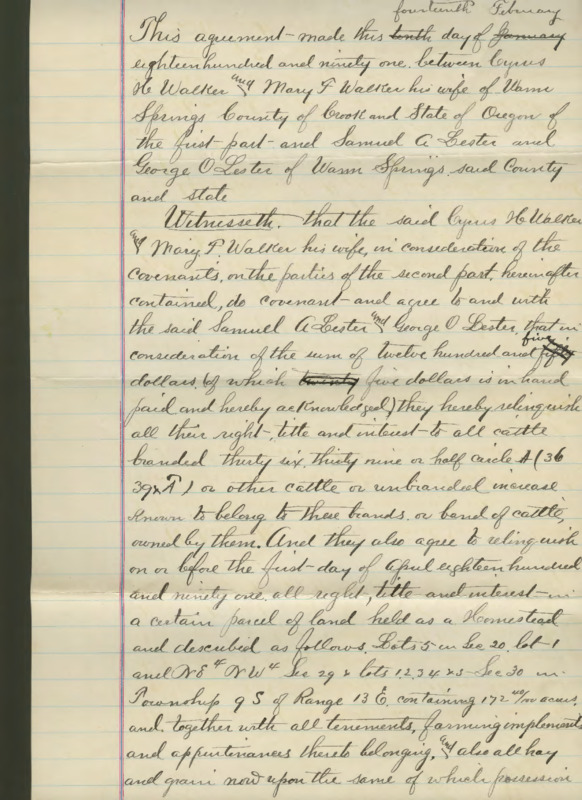 fourteenth February
This agreement made this tenth day of January
eighteen hundred and ninety one, between Cyrus
H Walker and Mary F Walker his wife of Warm
Springs County of Crook and State of Oregon of
the first part and Samuel A Lester and
George O Lester of Warm Springs said County
and state
Witnesseth. that the said Cyrus H Walker
and Mary F. Walker his wife, in consideration of the
covenants, on the parties of the second part, hereinafter
contained, do covenant and agree to and with
the said Samuel A Lester and George O Lester, that in
five
consideration of the sum of twelve hundred and fifty
dollars, (of which twenty five dollars is in hand
paid and hereby acknowledged) they hereby relinquish
all their right, title and interest to all cattle
branded thirty six, thirty nine or half circle (36
39 ) or other cattle or unbranded increase
known to belong to these brands, or band of cattle
owned by them. And they also agree to relinquish
on or before the first day of April eighteen hundred
and ninety one, all right, title and interest in
a certain parcel of land held as a Homestead
and described as follows. Lots 5 in Sec 20, lot 1
and NE 4 NW 4 Sec 29 & lots 1 2 3 4 & 5 Sec 30 in
Township 9 S of Range 13 E. containing 172 acres,
and together with all tenements, farming implements
and appurtenances thereto belonging, and also all hay
and grain now upon the same of which possession